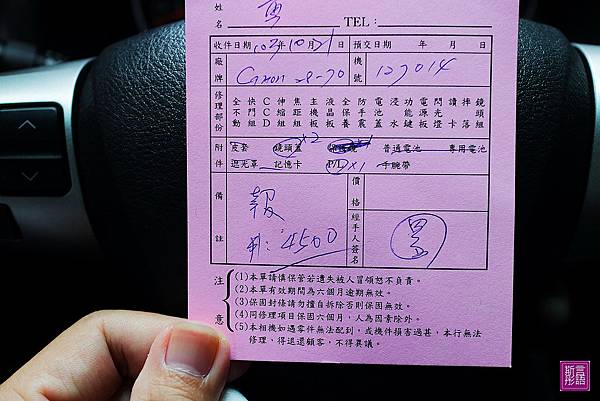 姓名 TEL：
收件日期 103年10月21日 預交日期 年 月 日
廠牌 Canon 28-70 機號 127014
修理部份 全不動 快門組 C C D 伸縮組 焦距組 主機板 液晶板 全保養 防手震 電池蓋 浸水 功能鍵 電源板 閃光燈 讀卡 摔落 鏡頭組
附件 皮套 鏡頭蓋 x2 普通電池 專用電池
遮光罩 記憶卡 P/L x1 手腕帶
備註 報 價格
4500 經手人簽名
注意
(1)本單請慎保管若遺失被人冒領恕不負責。
(2)本單有效期間為六個月逾期無效。
(3)保固封條請勿擅自拆除否則保固無效。
(4)同修理項目保固六個月，人為因素除外。
(5)本相機如遇零件無法配到，或機件損害過甚，本行無法
修理、得退還顧客，不得異議。